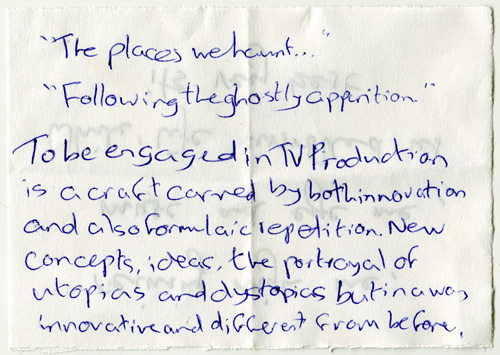 "The places we haunt..."
"Following the ghostly apparition."
To be engaged in TV Production
is a craft carried by both innovation
and also formulaic repetition. New
concepts, ideas, the portrayal of
utopias and dystopias but in a way
innovative and different from before.